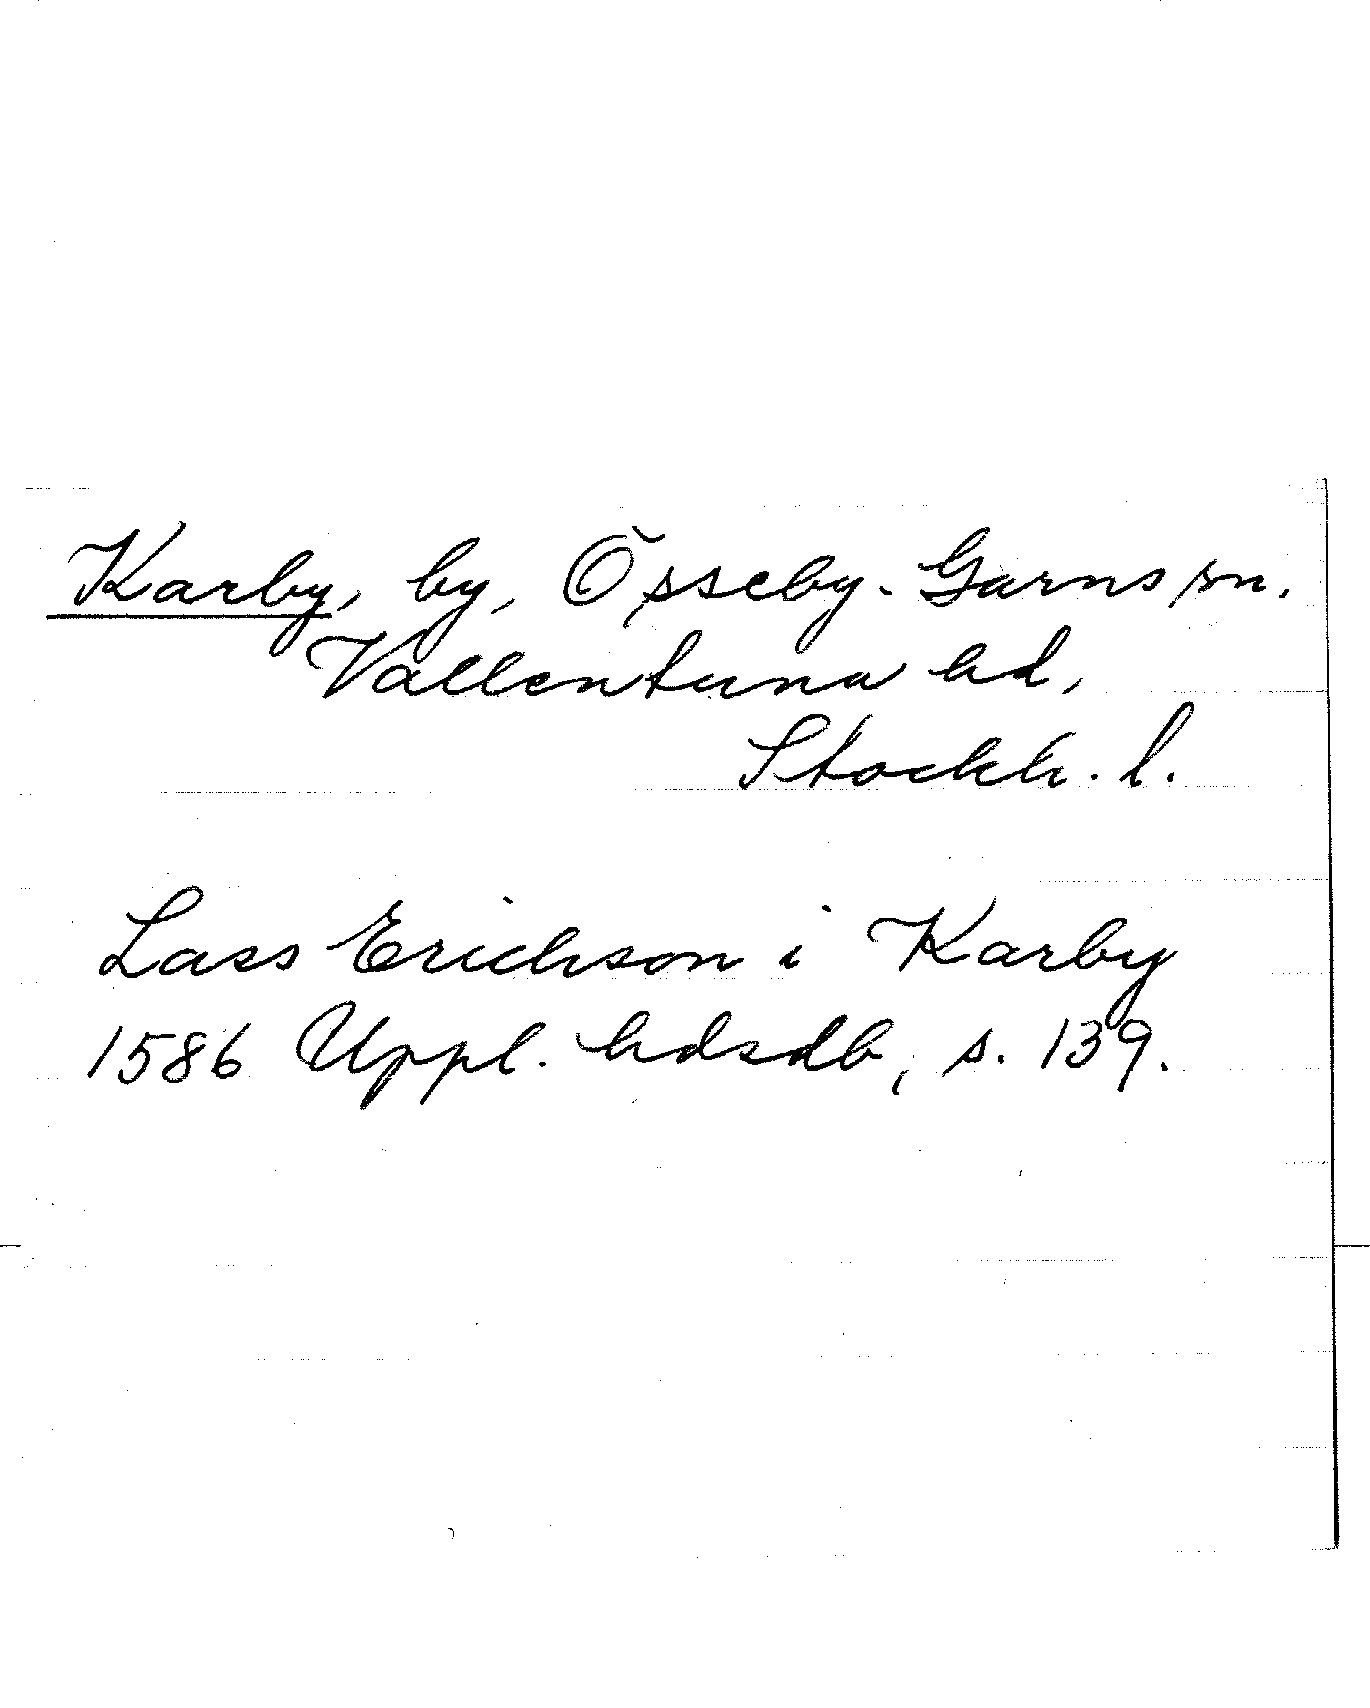 Karby, by, Össeby-Garns sn.
Vallentuna hd,
Stockh. l.
Lass Erichson i Karby
1586 Uppl. hdsdb, s. 139.